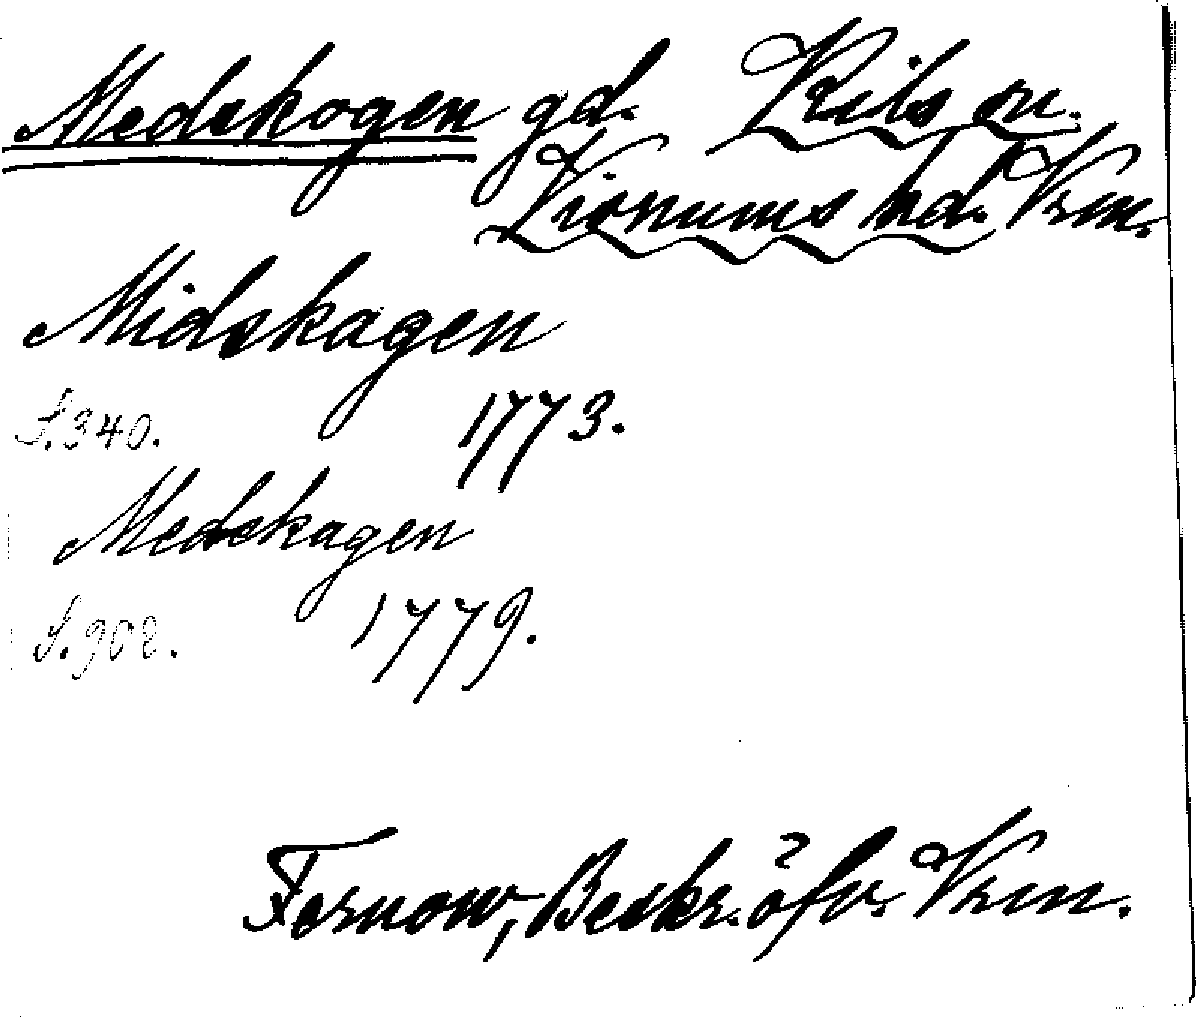 Medskogen gd. Kils sn.
Kionums hd. Vrm.
Midskagen
S. 340. 1773.
Medskagen
S. 902. 1779.
Fernow, Beskr. öfv. Vrm.